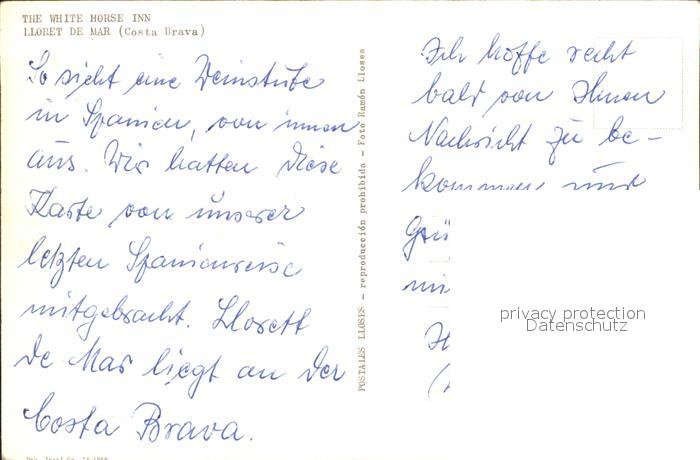 THE WHITE HORSE INN
LLORET DE MAR (Costa Brava)
So sieht eine Weinstube
in Spanien, von innen
aus. Wir hatten diese
Karte von unserer
letzten Spanienreise
mitgebracht. Llorett
de Mar liegt an der
Costa Brava.
POSTALES LLOSES - reproducción prohibida - Foto Ramón Lloses
Ich hoffe recht
bald von Ihnen
Nachricht zu be-
kommen und
Grü
mi
privacy protection
Datenschutz